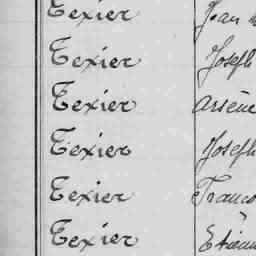 Texier Jean
Texier Joseph
Texier Arsène
Texier Joseph
Texier
Texier